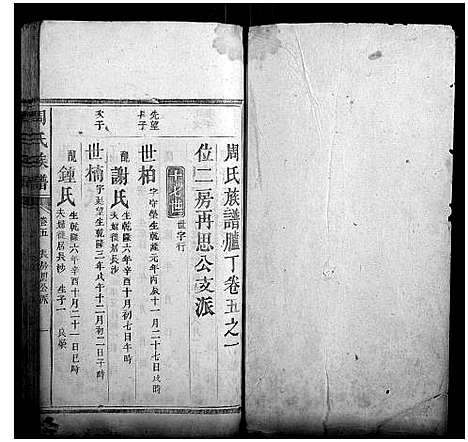 周氏族譜臚丁卷五之一
位二房再思公支派
十七世 世字行
先望
長子
世柏 字守榮生乾隆元年丙辰十一月二十七日戌時
配謝氏 生乾隆六年辛酉十月初七日午時
夫婦徙居長沙
次子
世楠 字彩望生乾隆三年戊午十二月初二日子時
配鍾氏 生乾隆六年辛酉十月二十一日巳時
夫婦徙居長沙 生子一 良榮
周氏族譜 卷五 房思公派 一